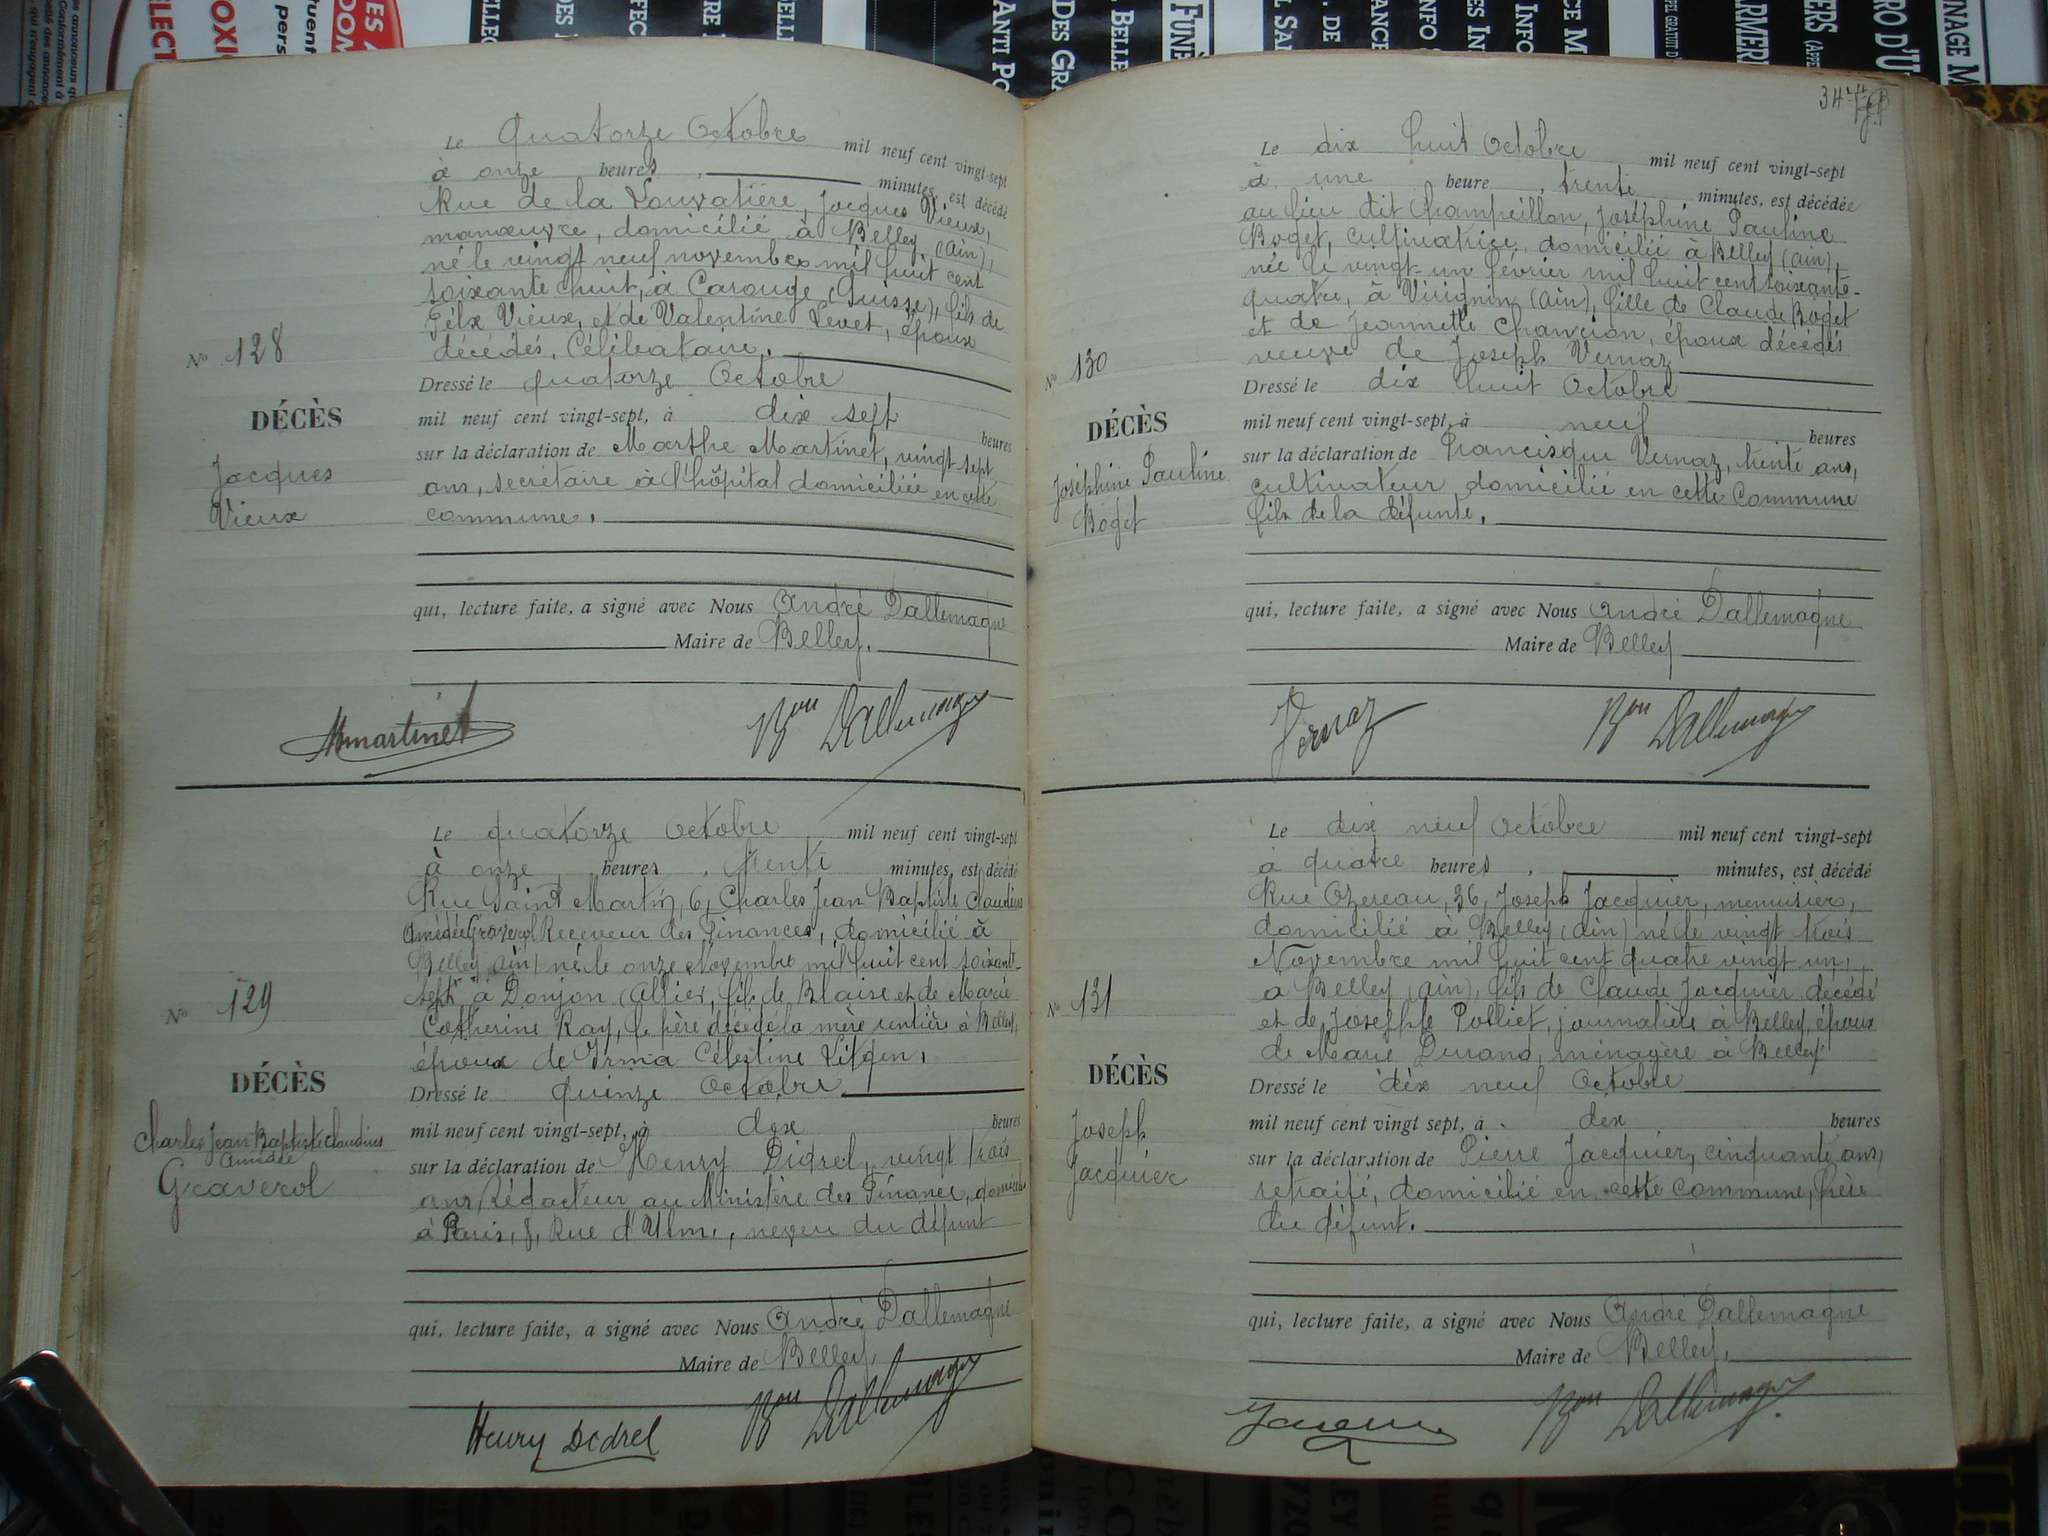 Le quatorze Octobre mil neuf cent vingt-sept
à onze heures, minutes, est décédé
Rue de la Louvatière, Jacques Vieux,
manœuvre, domicilié à Belley (Ain),
né le vingt neuf novembre mil huit cent
soixante huit, à Carouge (Suisse), fils de
Félix Vieux, et de Valentine Levet, époux
décédés, Célibataire.
Nº 128
DÉCÈS
Jacques
Vieux
Dressé le quatorze Octobre
mil neuf cent vingt-sept, à dix sept heures
sur la déclaration de Marthe Martinet, vingt sept
ans, secrétaire à l'hôpital domiciliée en cette
commune.
qui, lecture faite, a signé avec Nous André Dallemagne
Maire de Belley.
Mmartinet Bon Dallemagne
Le quatorze Octobre mil neuf cent vingt-sept
à onze heures, trente minutes, est décédé
Rue Saint Martin, 6, Charles Jean Baptiste Claudius
Amédée Graverol Receveur des Finances, domicilié à
Belley (Ain) né le onze Novembre mil huit cent soixante-
sept à Donjon (Allier, fils de Blaise et de Marie
Catherine Ray, le père décédé la mère rentière à Belley,
époux de Irma Célestine
Nº 129
DÉCÈS
Charles Jean Baptiste Claudius
Amédée
Graverol
Dressé le quinze Octobre
mil neuf cent vingt-sept, à dix heures
sur la déclaration de Henry Didrel, vingt trois
ans, Rédacteur au Ministère des Finances, domicilié
à Paris, 8, Rue d'Ulm, neveu du défunt
qui, lecture faite, a signé avec Nous André Dallemagne
Maire de Belley.
Henry Didrel Bon Dallemagne
34
Le dix huit Octobre mil neuf cent vingt-sept
à une heure, trente minutes, est décédée
au lieu dit Champeillon, Joséphine Pauline
Boget, cultivatrice, domicilié à Belley (Ain),
née le vingt-un février mil huit cent soixante-
quatre, à Virignin (Ain), fille de Claude Boget
et de Jeannette Charvion, époux décédés
veuve de Joseph Vernaz
Nº 130
DÉCÈS
Joséphine Pauline
Boget
Dressé le dix huit Octobre
mil neuf cent vingt-sept, à neuf heures
sur la déclaration de Francisque Vernaz, trente ans,
cultivateur domicilié en cette Commune
fils de la défunte.
qui, lecture faite, a signé avec Nous André Dallemagne
Maire de Belley
Vernaz Bon Dallemagne
Le dix neuf Octobre mil neuf cent vingt-sept
à quatre heures, minutes, est décédé
Rue Ozereau, 36, Joseph Jacquier, menuisier,
domicilié à Belley (Ain) né le vingt trois
Novembre mil huit cent quatre vingt un,
a Belley (Ain), fils de Claude Jacquier décédé
et de Josephte Polliet, journalière à Belley, époux
de Marie Durand, ménagère à Belley
Nº 131
DÉCÈS
Joseph
Jacquier
Dressé le dix neuf Octobre
mil neuf cent vingt sept, à dix heures
sur la déclaration de Pierre Jacquier, cinquante ans,
retraité, domicilié en cette Commune, frère
du défunt.
qui, lecture faite, a signé avec Nous André Dallemagne
Maire de Belley.
Bon Dallemagne